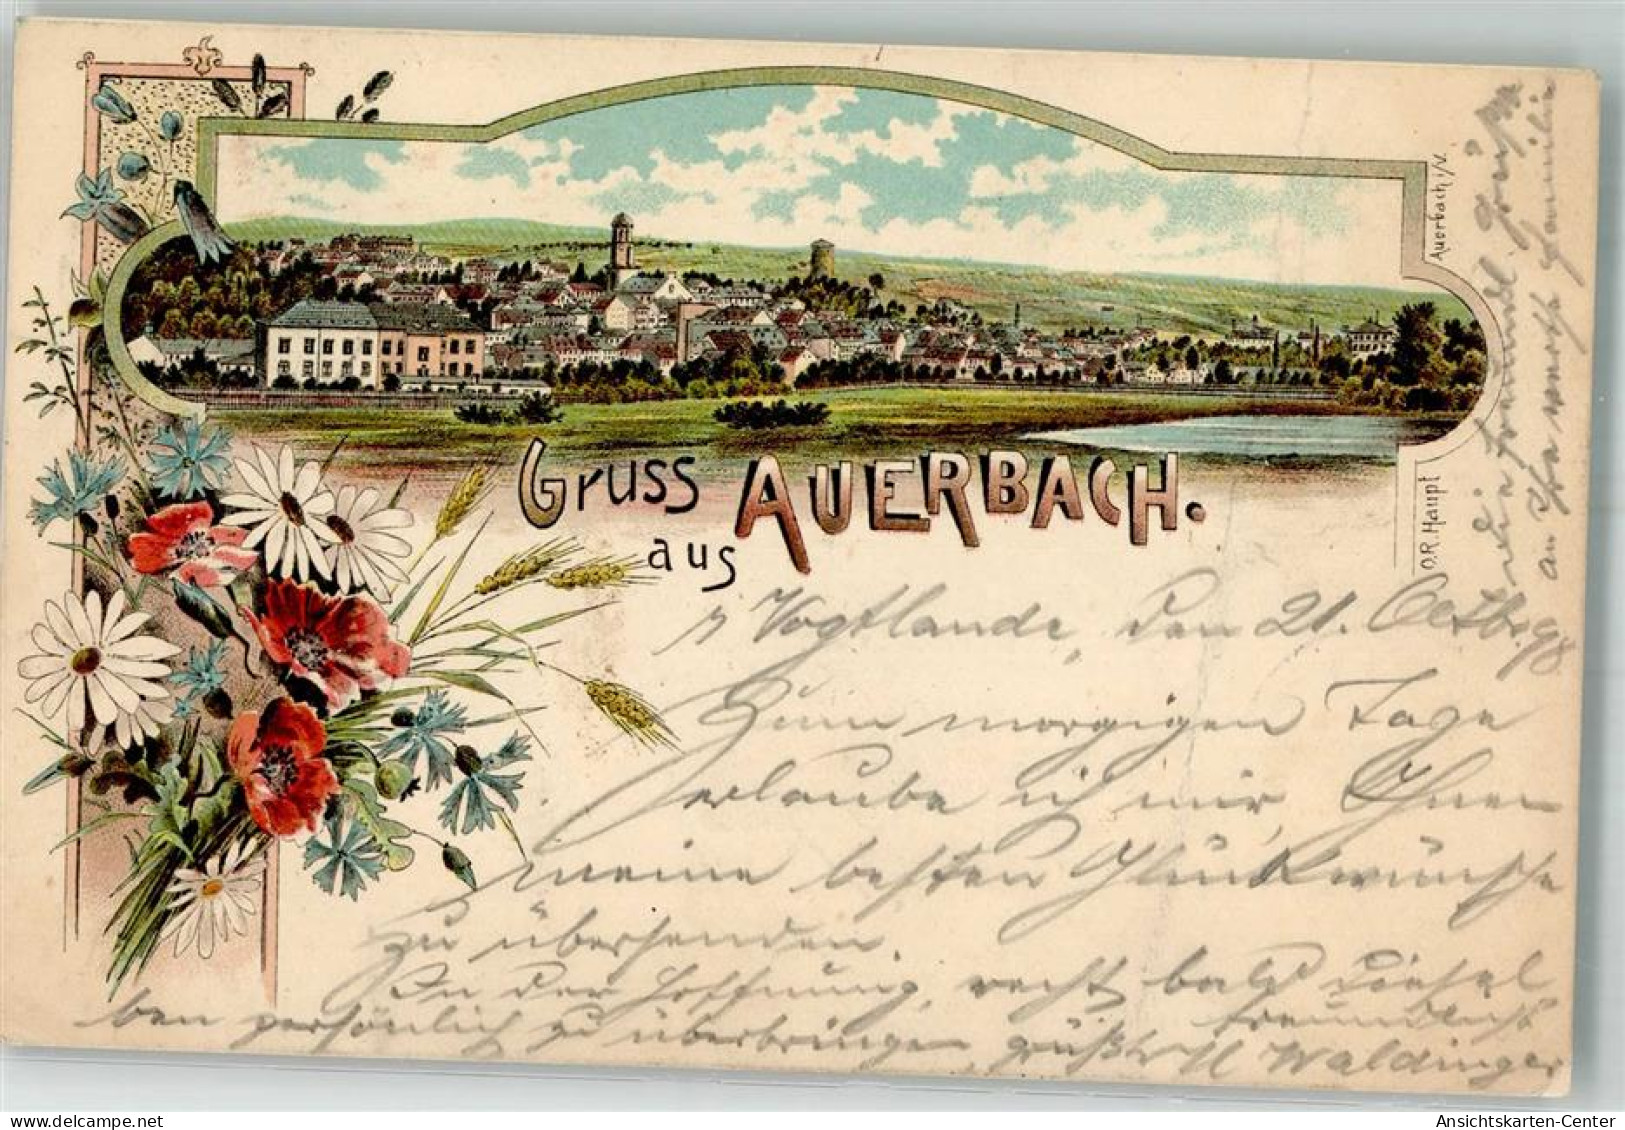 Gruss
aus
AUERBACH.
Auerbach i/V.
O.R. Haupt
i/ Vogtlande, den 21. Octbr. 98
Zum morgigen Tage
erlaube ich mir, Ihnen
meine besten Glückwünsche
zu übersenden.
In der Hoffnung, recht bald diesel
ben persönlich zu überbringen, grüßt
freundlichst
Waldinger
freundl. Grüße
an Ihre werthe Familie
Ansichtskarten-Center